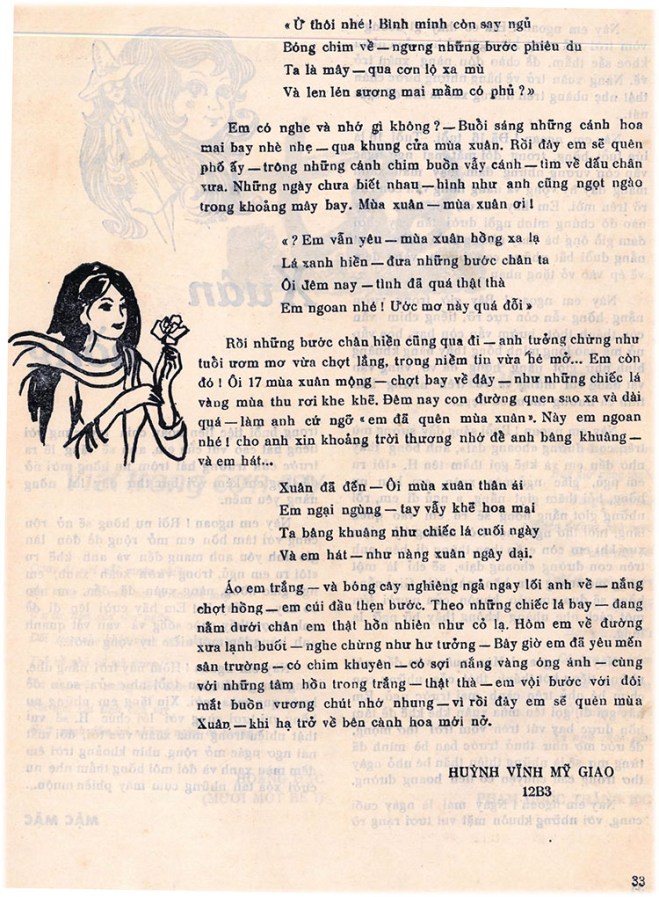 « Ừ thôi nhé ! Bình minh còn say ngủ
Bóng chim về — ngưng những bước phiêu du
Ta là mây — qua cơn lộ xa mù
Và len lén sương mai mầm có phủ ? »
Em có nghe và nhớ gì không ? — Buổi sáng những cánh hoa
mai bay nhè nhẹ — qua khung cửa mùa xuân. Rồi đây em sẽ quên
phố ấy — trông những cánh chim buồn vẫy cánh — tìm về dấu chân
xưa. Những ngày chưa biết nhau — hình như anh cũng ngọt ngào
trong khoảng mây bay. Mùa xuân — mùa xuân ơi !
« ? Em vẫn yêu — mùa xuân hồng xa lạ
Lá xanh hiền — đưa những bước chân ta
Ôi đêm nay — tình đã quá thật thà
Em ngoan nhé ! Ước mơ này quá đỗi »
Rồi những bước chân hiền cũng qua đi — anh tưởng chừng như
tuổi ươm mơ vừa chợt lắng, trong niềm tin vừa hé mở... Em còn
đó ! Ôi 17 mùa xuân mộng — chợt bay về đây — như những chiếc lá
vàng mùa thu rơi khe khẽ. Đêm nay con đường quen sao xa và dài
quá — làm anh cứ ngỡ « em đã quên mùa xuân ». Này em ngoan
nhé ! cho anh xin khoảng trời thương nhớ để anh bâng khuâng —
và em hát...
Xuân đã đến — Ôi mùa xuân thân ái
Em ngại ngùng — tay vẫy khẽ hoa mai
Ta bâng khuâng như chiếc lá cuối ngày
Và em hát — như nàng xuân ngày dại.
Áo em trắng — và bóng cây nghiêng ngả ngay lối anh về — nắng
chợt hồng — em cúi đầu thẹn bước. Theo những chiếc lá bay — đang
nằm dưới chân em thật hồn nhiên như cỏ lạ. Hôm em về đường
xưa lạnh buốt — nghe chừng như hư tưởng — Bây giờ em đã yêu mến
sân trường — có chim khuyên — có sợi nắng vàng óng ánh — cùng
với những tâm hồn trong trắng — thật thà — em vội bước với đôi
mắt buồn vương chút nhớ nhung — vì rồi đây em sẽ quên mùa
Xuân — khi hạ trở về bên cành hoa mới nở.
HUỲNH VĨNH MỸ GIAO
12B3
33